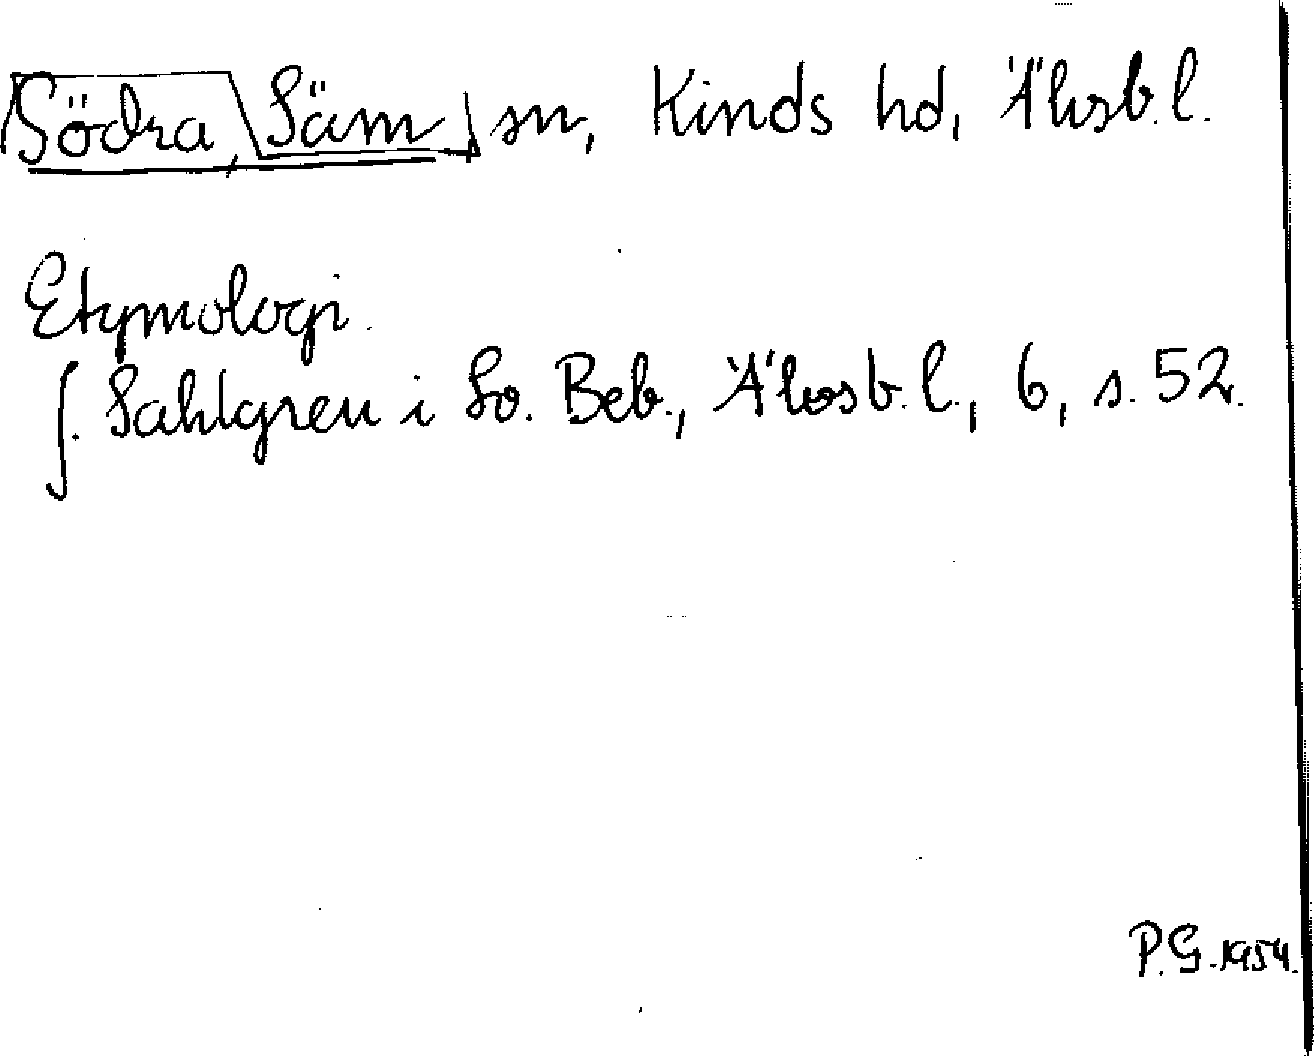 Södra Säm sn, Kinds hd, Älvsb. l.
Etymologi.
J. Sahlgren i Sv. Beb., Älvsb. l., 6, s. 52.
P.G. 1954.